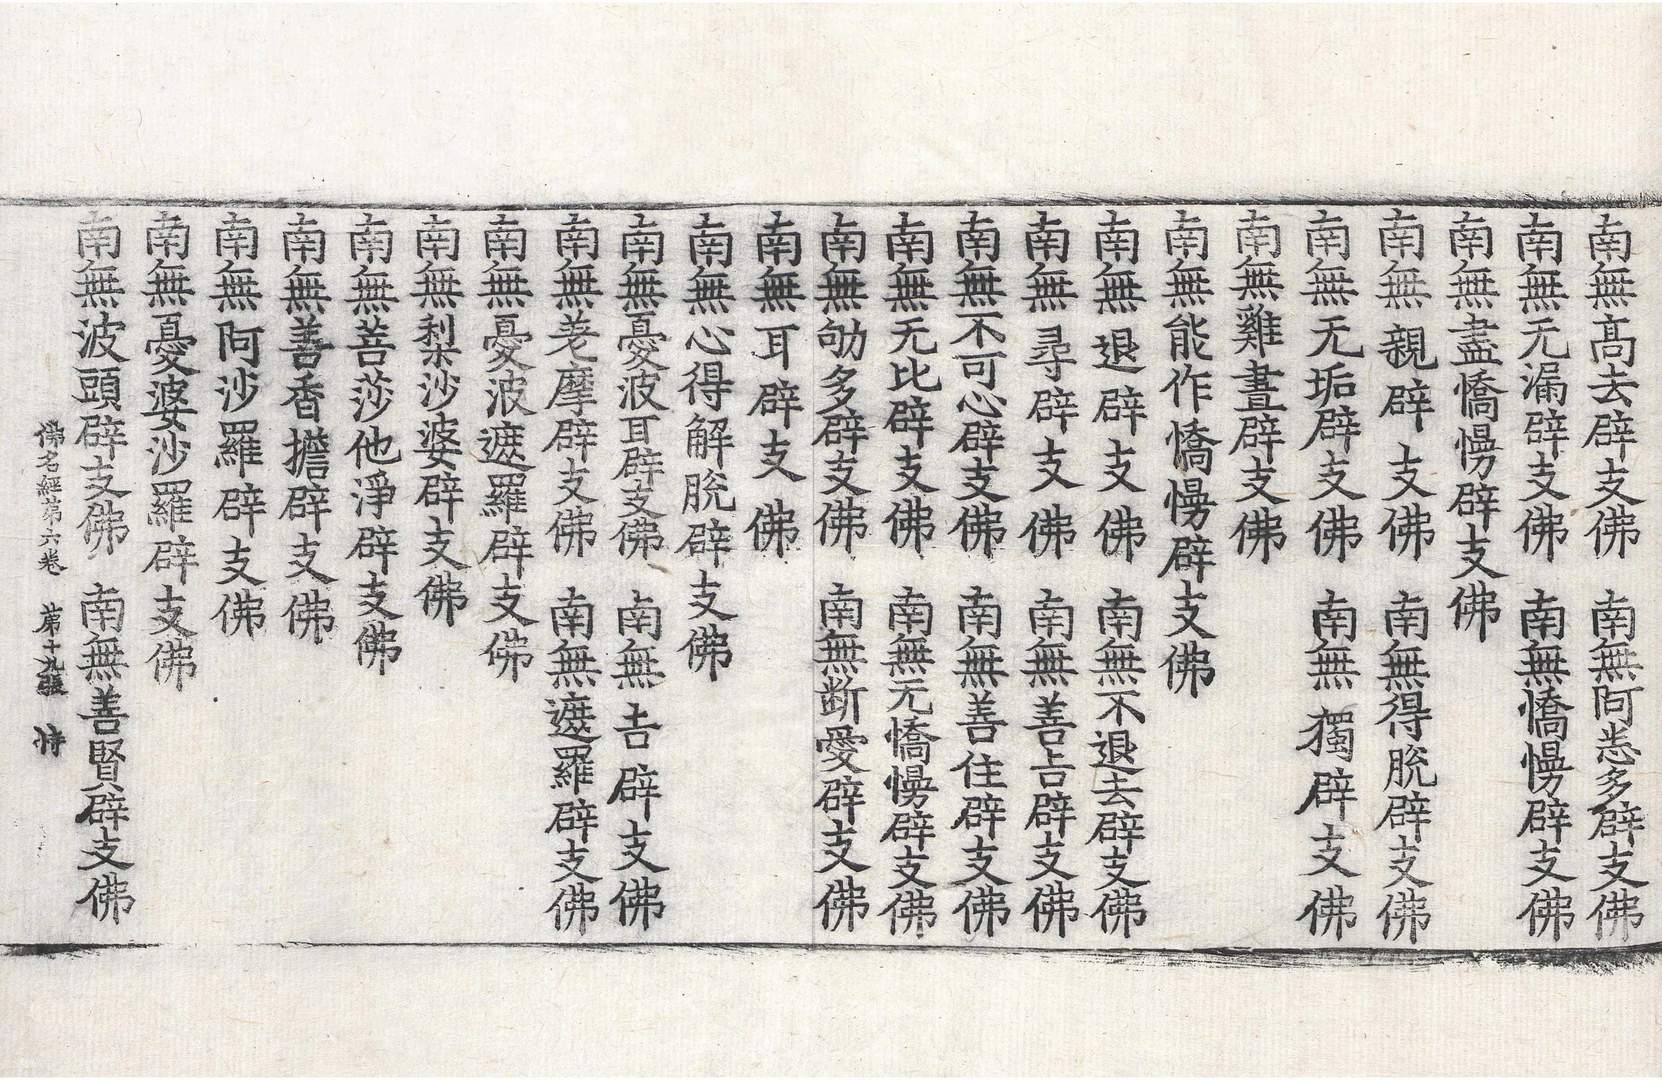 南無高去辟支佛 南無阿悉多辟支佛
南無无漏辟支佛 南無憍慢辟支佛
南無盡憍慢辟支佛
南無親辟支佛 南無得脫辟支佛
南無无垢辟支佛 南無獨辟支佛
南無難晝辟支佛
南無能作憍慢辟支佛
南無退辟支佛 南無不退去辟支佛
南無尋辟支佛 南無善吉辟支佛
南無不可心辟支佛 南無善住辟支佛
南無无比辟支佛 南無无憍慢辟支佛
南無劬多辟支佛 南無断愛辟支佛
南無耳辟支佛
南無心得解脫辟支佛
南無憂波耳辟支佛 南無吉辟支佛
南無差摩辟支佛 南無遮羅辟支佛
南無憂波遮羅辟支佛
南無梨沙婆辟支佛
南無菩莎他淨辟支佛
南無善香擔辟支佛
南無阿沙羅辟支佛
南無憂婆沙羅辟支佛
南無波頭辟支佛 南無善賢辟支佛
佛名經苐六卷 苐十九張